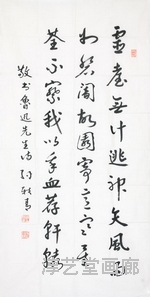 靈臺無計逃神矢風雨
如磐闇故園寄意寒星
荃不察我以我血薦軒轅
敬書魯迅先生詩
淳艺堂画廊